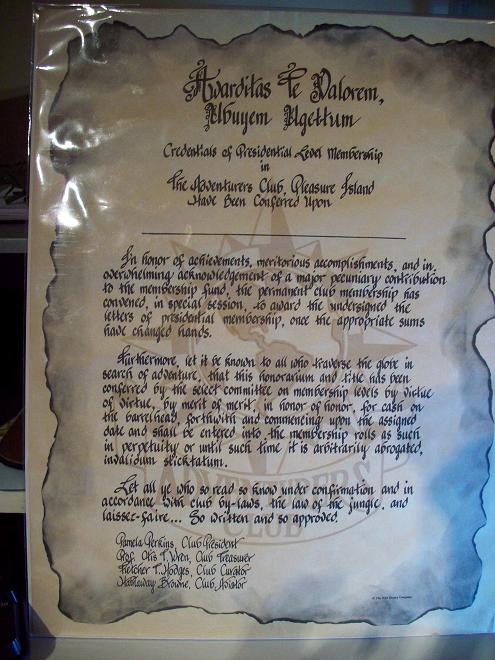 Awarditas Te Valorem,
Ubuyem Ugettum
Credentials of Presidential Level Membership
in
The Adventurers Club, Pleasure Island
Have Been Conferred Upon
In honor of achievements, meritorious accomplishments, and in
overwhelming acknowledgement of a major pecuniary contribution
to the membership fund, the permanent club membership has
convened, in special session, to award the undersigned the
letters of presidential membership, once the appropriate sums
have changed hands.
Furthermore, let it be known to all who traverse the globe in
search of adventure, that this honorarium and title has been
conferred by the select committee on membership levels by virtue
of virtue, by merit of merit, in honor of honor, for cash on
the barrelhead, forthwith and commencing upon the assigned
date and shall be entered into the membership rolls as such
in perpetuity or until such time it is arbitrarily abrogated,
invalidum sticktatum.
Let all ye who so read so know under confirmation and in
accordance with club by-laws, the law of the jungle, and
laisse-faire... So written and so approved.
Pamela Perkins, Club President
Prof. Otis T. Wren, Club Treasurer
Fletcher T. Hodges, Club Curator
Hathaway Browne, Club Aviator
ADVENTURERS
CLUB
© The Walt Disney Company